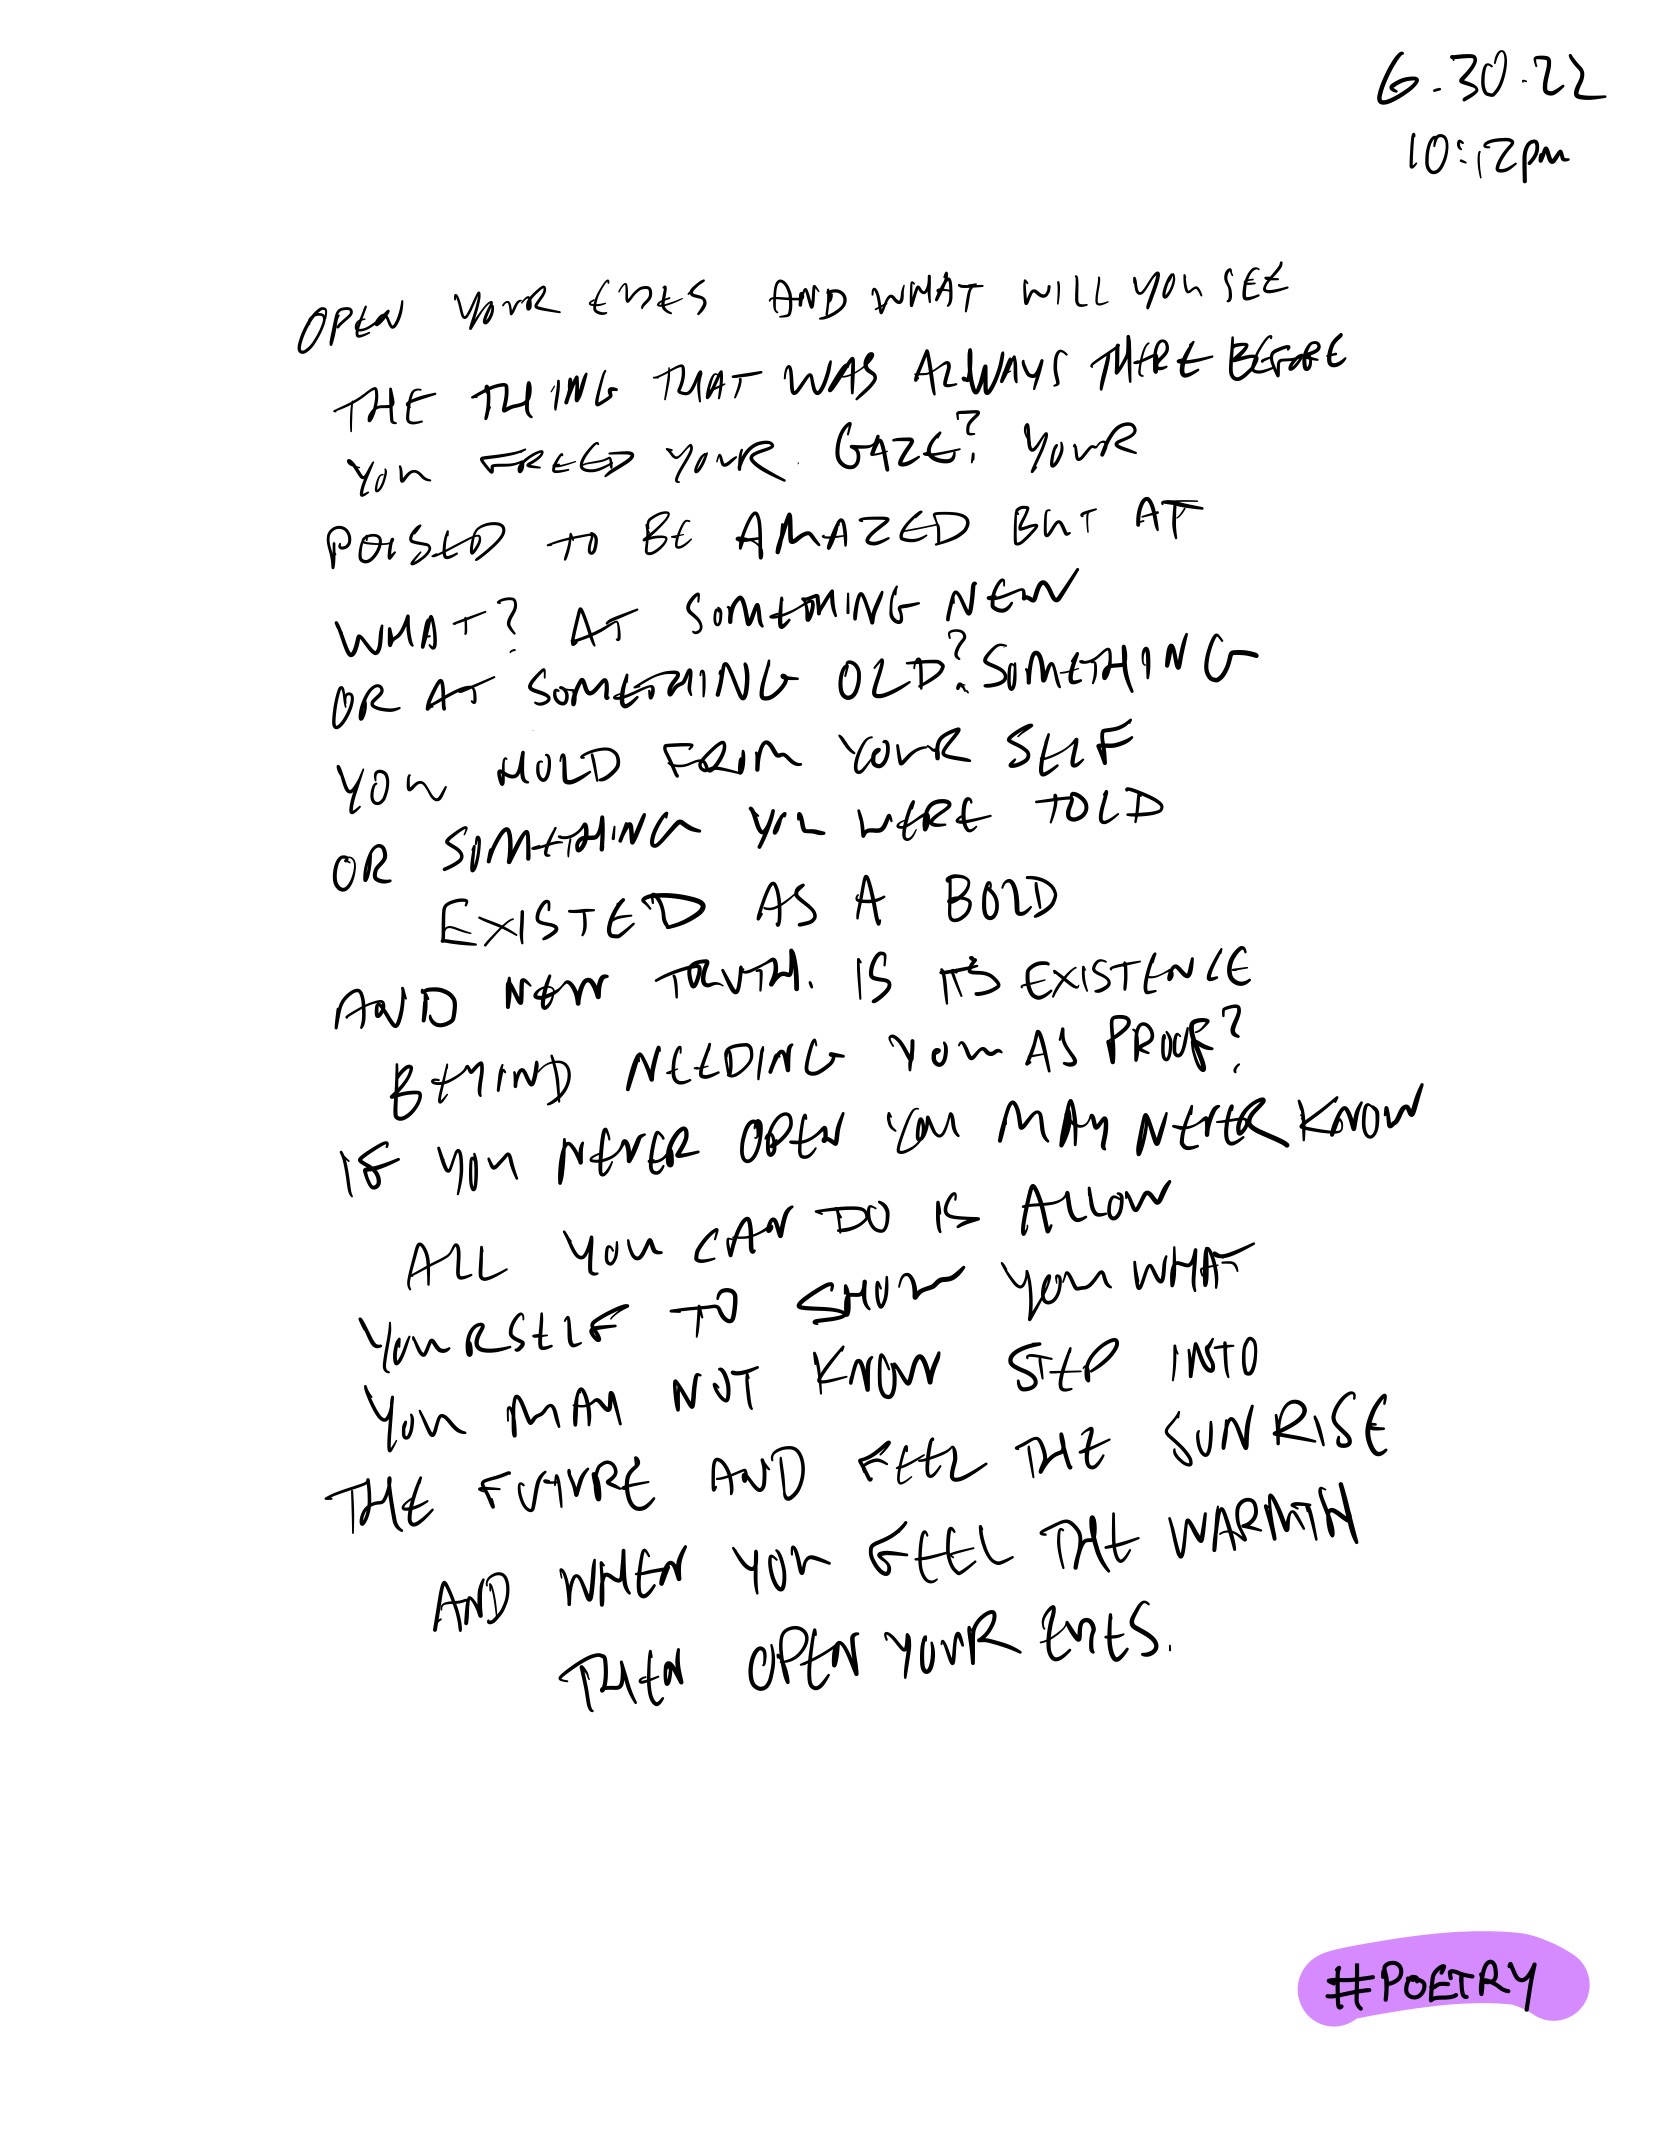 6.30.22
10:12pm
OPEN YOUR EYES AND WHAT WILL YOU SEE
THE THING THAT WAS ALWAYS THERE BEFORE
YOU FREED YOUR GAZE? YOUR
POISED TO BE AMAZED BUT AT
WHAT? AT SOMETHING NEW
OR AT SOMETHING OLD? SOMETHING
YOU HOLD FROM YOUR SELF
OR SOMETHING YOU WERE TOLD
EXISTED AS A BOLD
AND NEW TRUTH. IS ITS EXISTENCE
BEHIND NEEDING YOU AS PROOF?
IF YOU NEVER OPEN YOU MAY NEVER KNOW
ALL YOU CAN DO IS ALLOW
YOURSELF TO SHOW YOU WHAT
YOU MAY NOT KNOW STEP INTO
THE FUTURE AND FEEL THE SUNRISE
AND WHEN YOU FEEL THE WARMTH
THEN OPEN YOUR EYES.
#POETRY